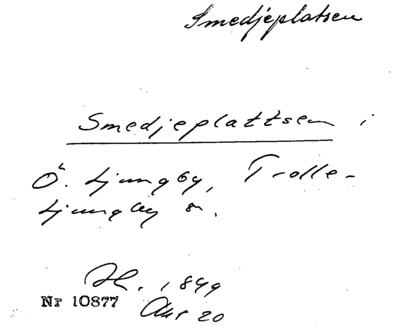 Smedjeplatsen
Smedjeplattsen i
Ö. Ljungby, Trolle-
Ljungby s.
H. 1849
Nr 10877
Akt 20